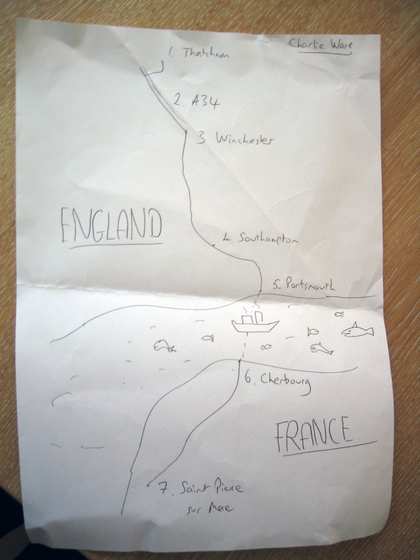 Charlie Ware
1. Thatcham
2. A34
3. Winchester
ENGLAND
4. Southampton
5. Portsmouth
6. Cherbourg
FRANCE
7. Saint Pierre
sur Mer